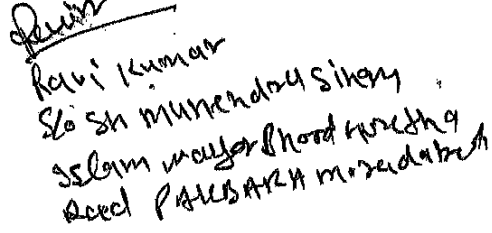 Ravi Kumar
S/o Sh Munendra Singh
Islam Nagar Bhood
Road PAKBARA Moradabad